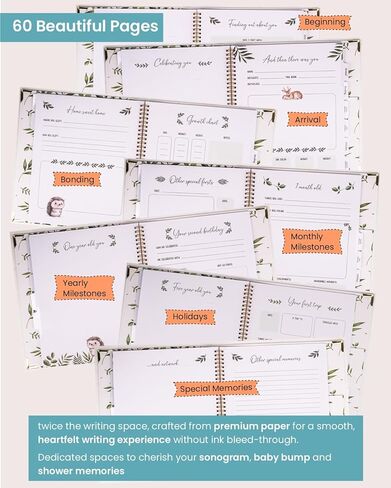 60 Beautiful Pages
Finding out about you
Beginning
Celebrating you
And then there was you
Arrival
Home sweet home
Growth chart
Bonding
Other special firsts
1 month old
Monthly
Milestones
One year old you
Your second birthday
Yearly
Milestones
Five year old you
Your first trip
Holidays
...and onward
Other special memories
Special Memories
twice the writing space, crafted from premium paper for a smooth,
heartfelt writing experience without ink bleed-through.
Dedicated spaces to cherish your sonogram, baby bump and
shower memories